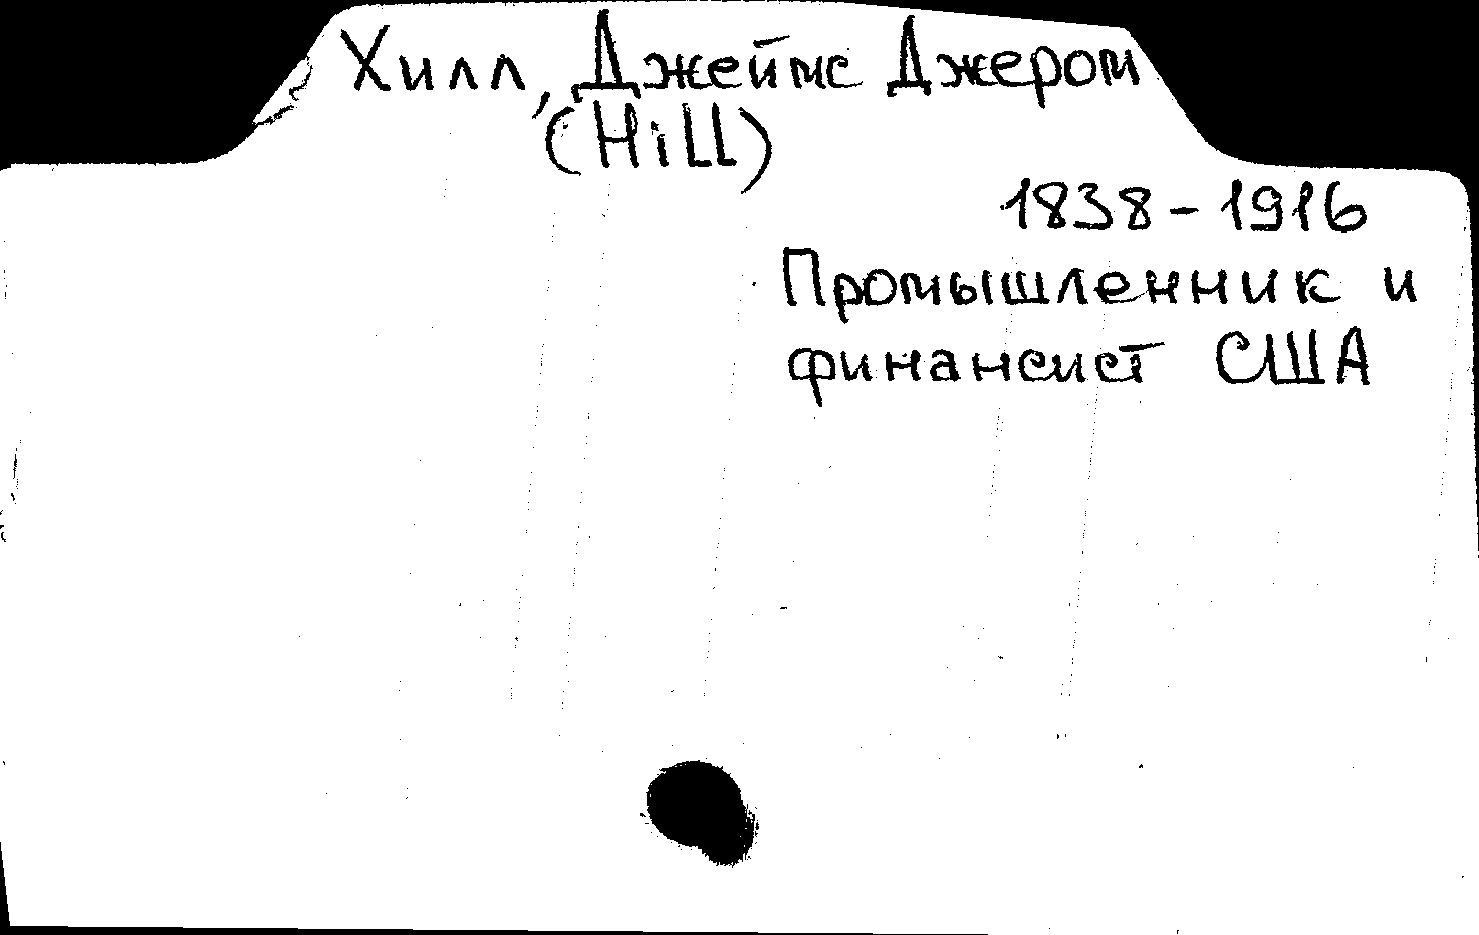 Хилл, Джеймс Джером
(Hill)
1838-1916
Промышленник и
финансист США